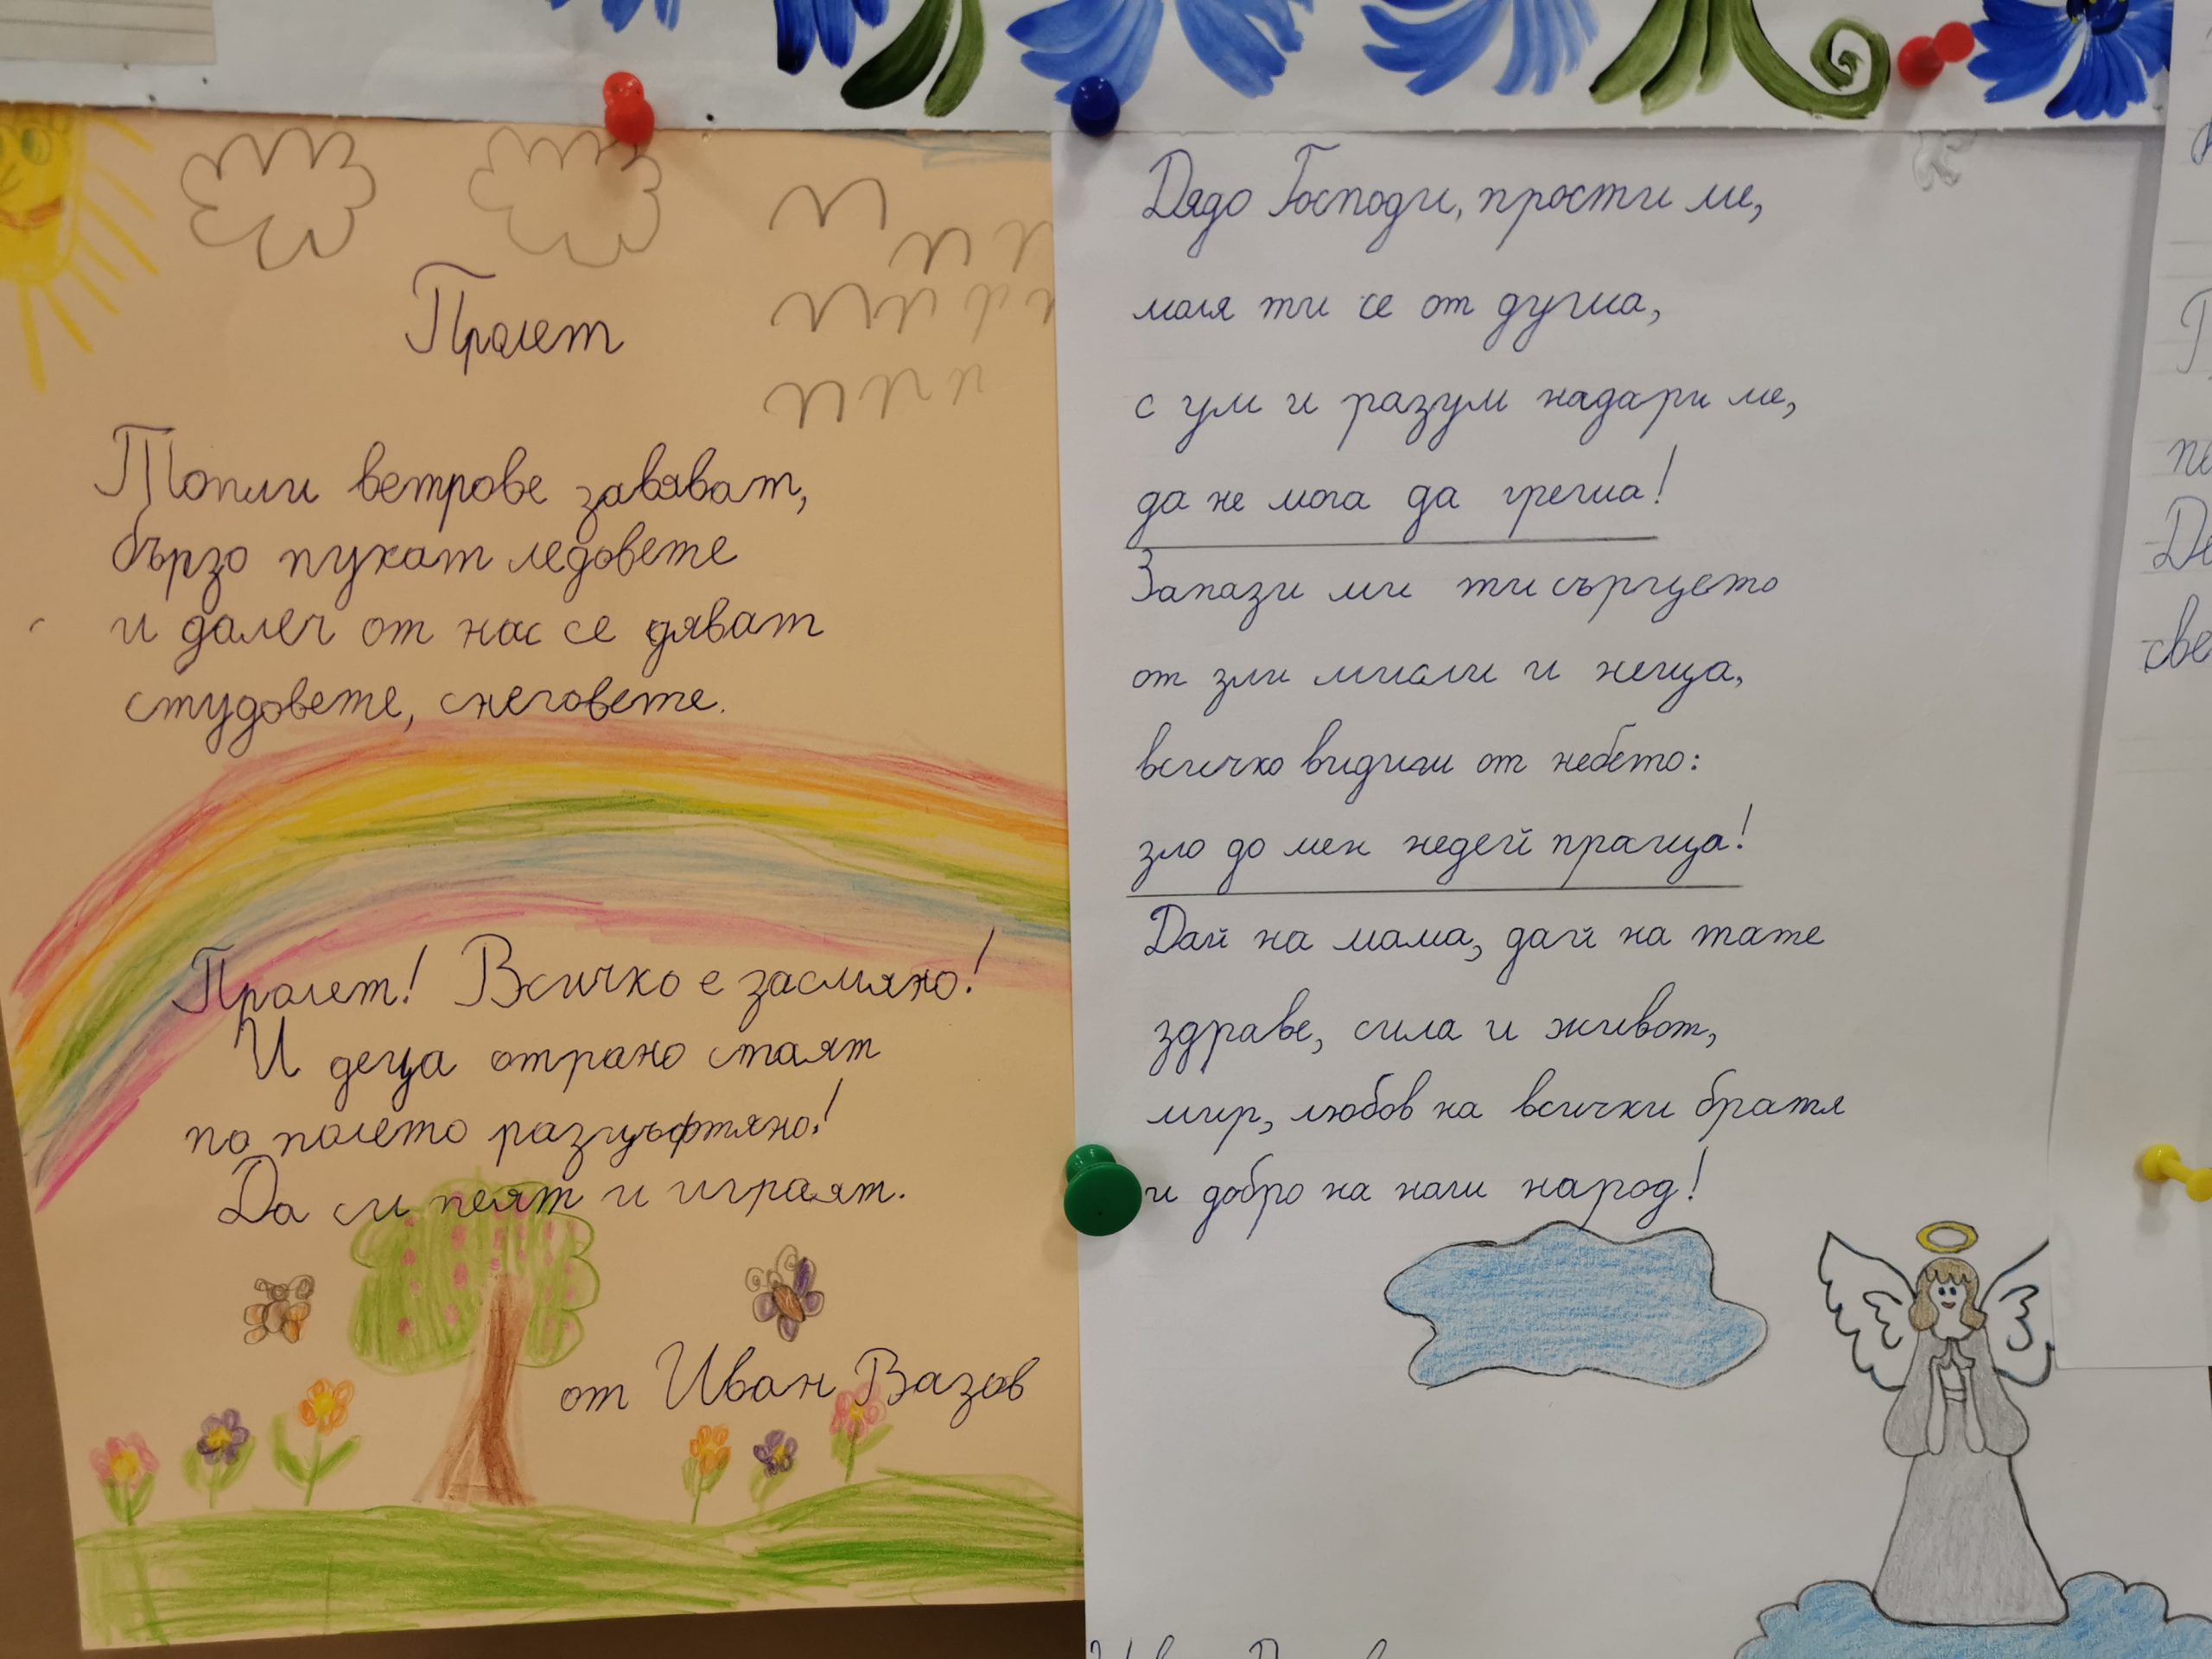 Пролет
Топли ветрове завяват,
бързо пукат ледовете
и далеч от нас се дяват
студовете, снеговете.
Пролет! Всичко е засмяно!
И деца отрано стаят
по полето разцъфтяно!
Да си пеят и играят.
от Иван Вазов
Дядо Господи, прости ме,
моля ти се от душа,
с ум и разум надари ме,
да не мога да греша!
Запази ми ти сърцето
от зли мисли и неща,
всичко видиш от небето:
зло до мен недей праща!
Дай на мама, дай на тате
здраве, сила и живот,
мир, любов на всички братя
и добро на наш народ!